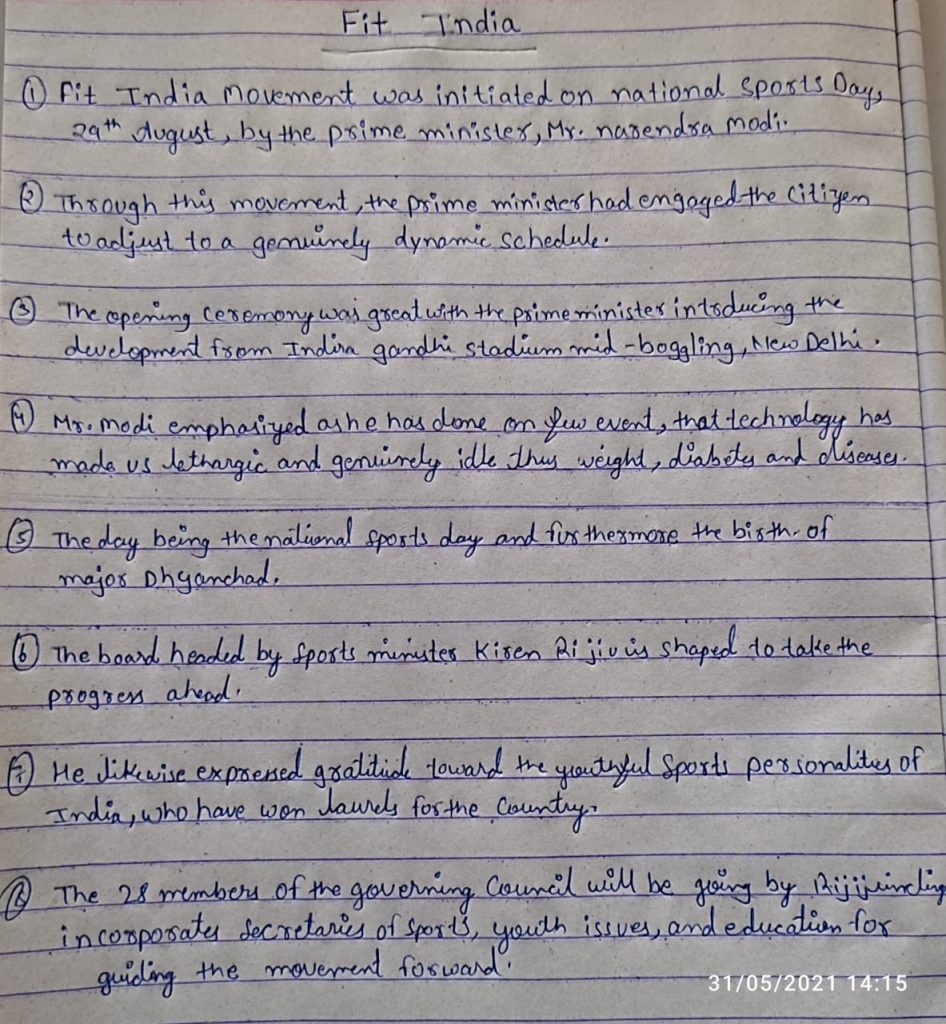 Fit India
① Fit India Movement was initiated on national sports Day,
29th August, by the prime minister, Mr. narendra modi.
② Through this movement, the prime minister had engaged the citizen
to adjust to a genuinely dynamic schedule.
③ The opening ceremony was great with the prime minister introducing the
development from Indira gandhi stadium mid-boggling, New Delhi.
④ Mr. modi emphasized as he has done on few event, that technology has
made us lethargic and genuinely idle thus weight, diabetes and diseases.
⑤ The day being the national sports day and furthermore the birth. of
major Dhyanchad.
⑥ The board headed by sports minister Kiren Rijiv is shaped to take the
progress ahead.
⑦ He likewise expressed gratitude toward the youthful Sports personalities of
India, who have won laurels for the Country.
⑧ The 28 members of the governing Council will be going by
incorporates Secretaries of sports, youth issues, and education for
guiding the movement forward.
31/05/2021 14:15